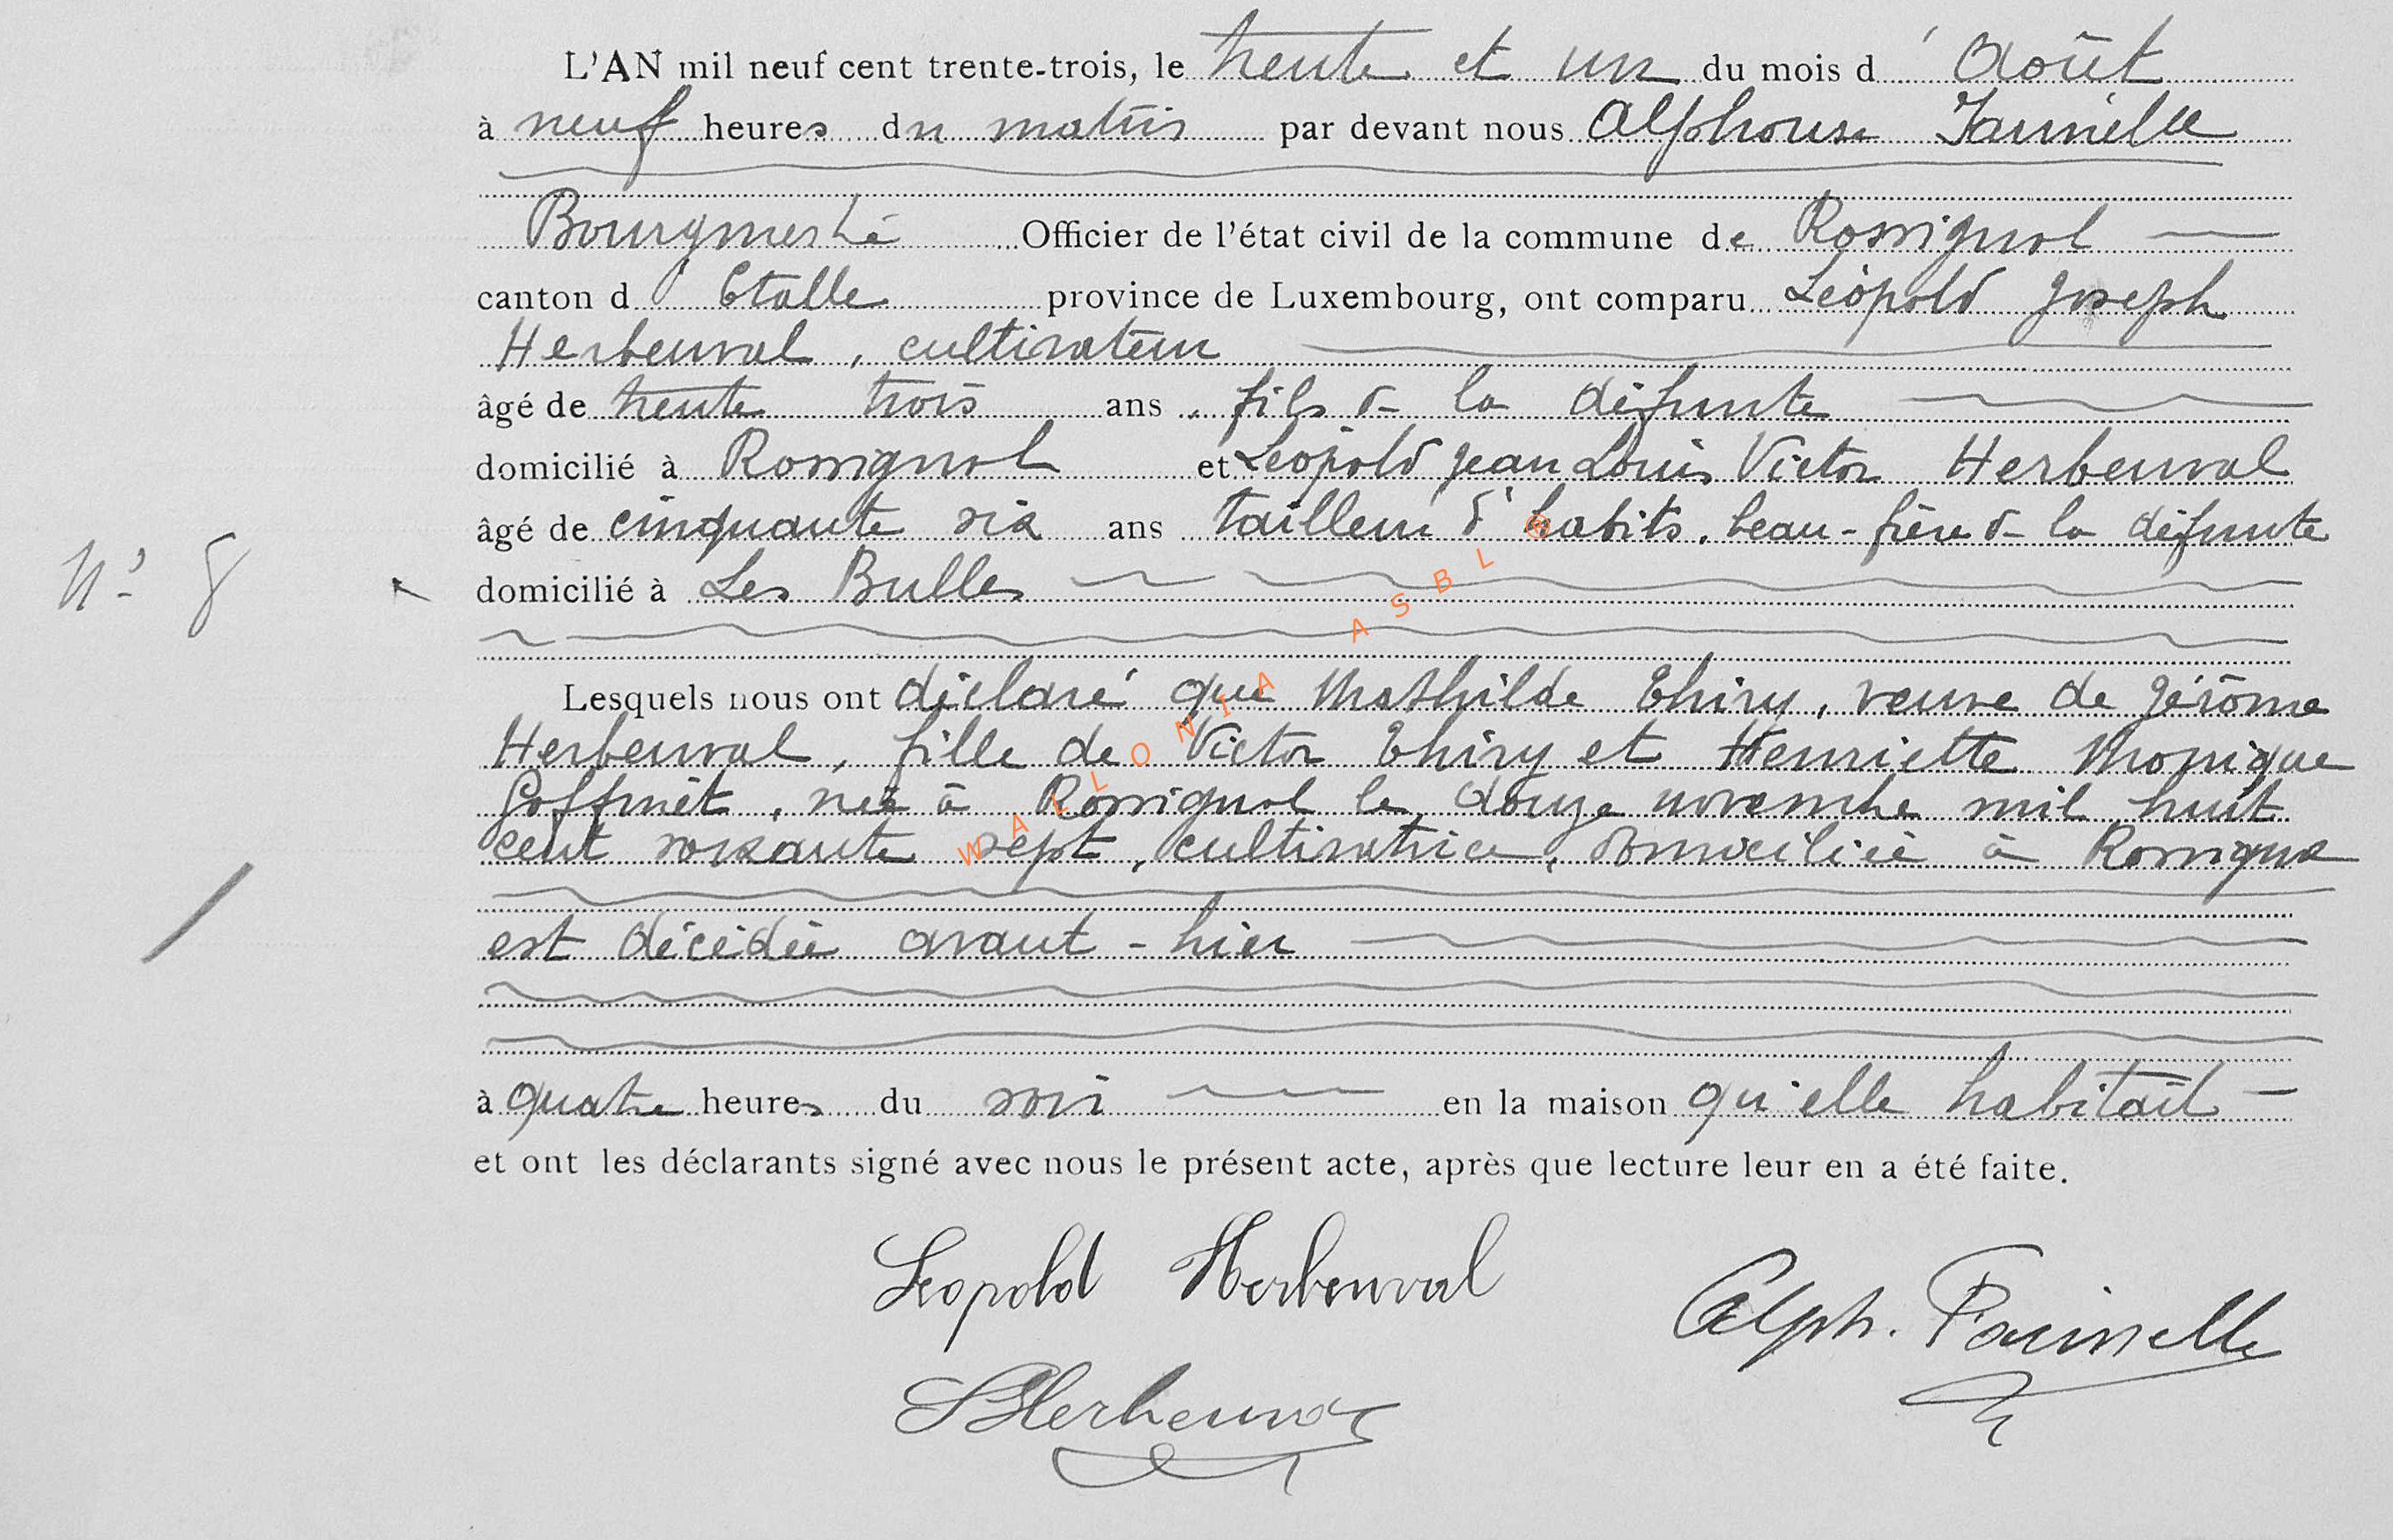 L'AN mil neuf cent trente-trois, le trente et un du mois d'Août
à neuf heures du matin par devant nous Alphonse Fannelle
Bourgmestre Officier de l'état civil de la commune de Rossignol
canton d'Etalle province de Luxembourg, ont comparu Léopold Joseph
Herbeuval, cultivateur
âgé de trente trois ans, fils de la défunte
domicilié à Rossignol et Léopold Jean Louis Victor Herbeuval
âgé de cinquante six ans tailleur d'habits, beau-frère de la défunte
N° 8
domicilié à Les Bulles
Lesquels nous ont déclaré que Mathilde Thiry, veuve de Jérôme
Herbeuval, fille de Victor Thiry et Henriette Monique
Goffinet, née à Rossignol le douze novembre mil huit
cent soixante sept, cultivatrice, domiciliée à Rossignol
est décédée avant-hier
à quatre heures du soir en la maison qu'elle habitait
et ont les déclarants signé avec nous le présent acte, après que lecture leur en a été faite.
Leopold Herbeuval
Alph. Fannelle
LHerbeuval
WALLONIA ASBL ®